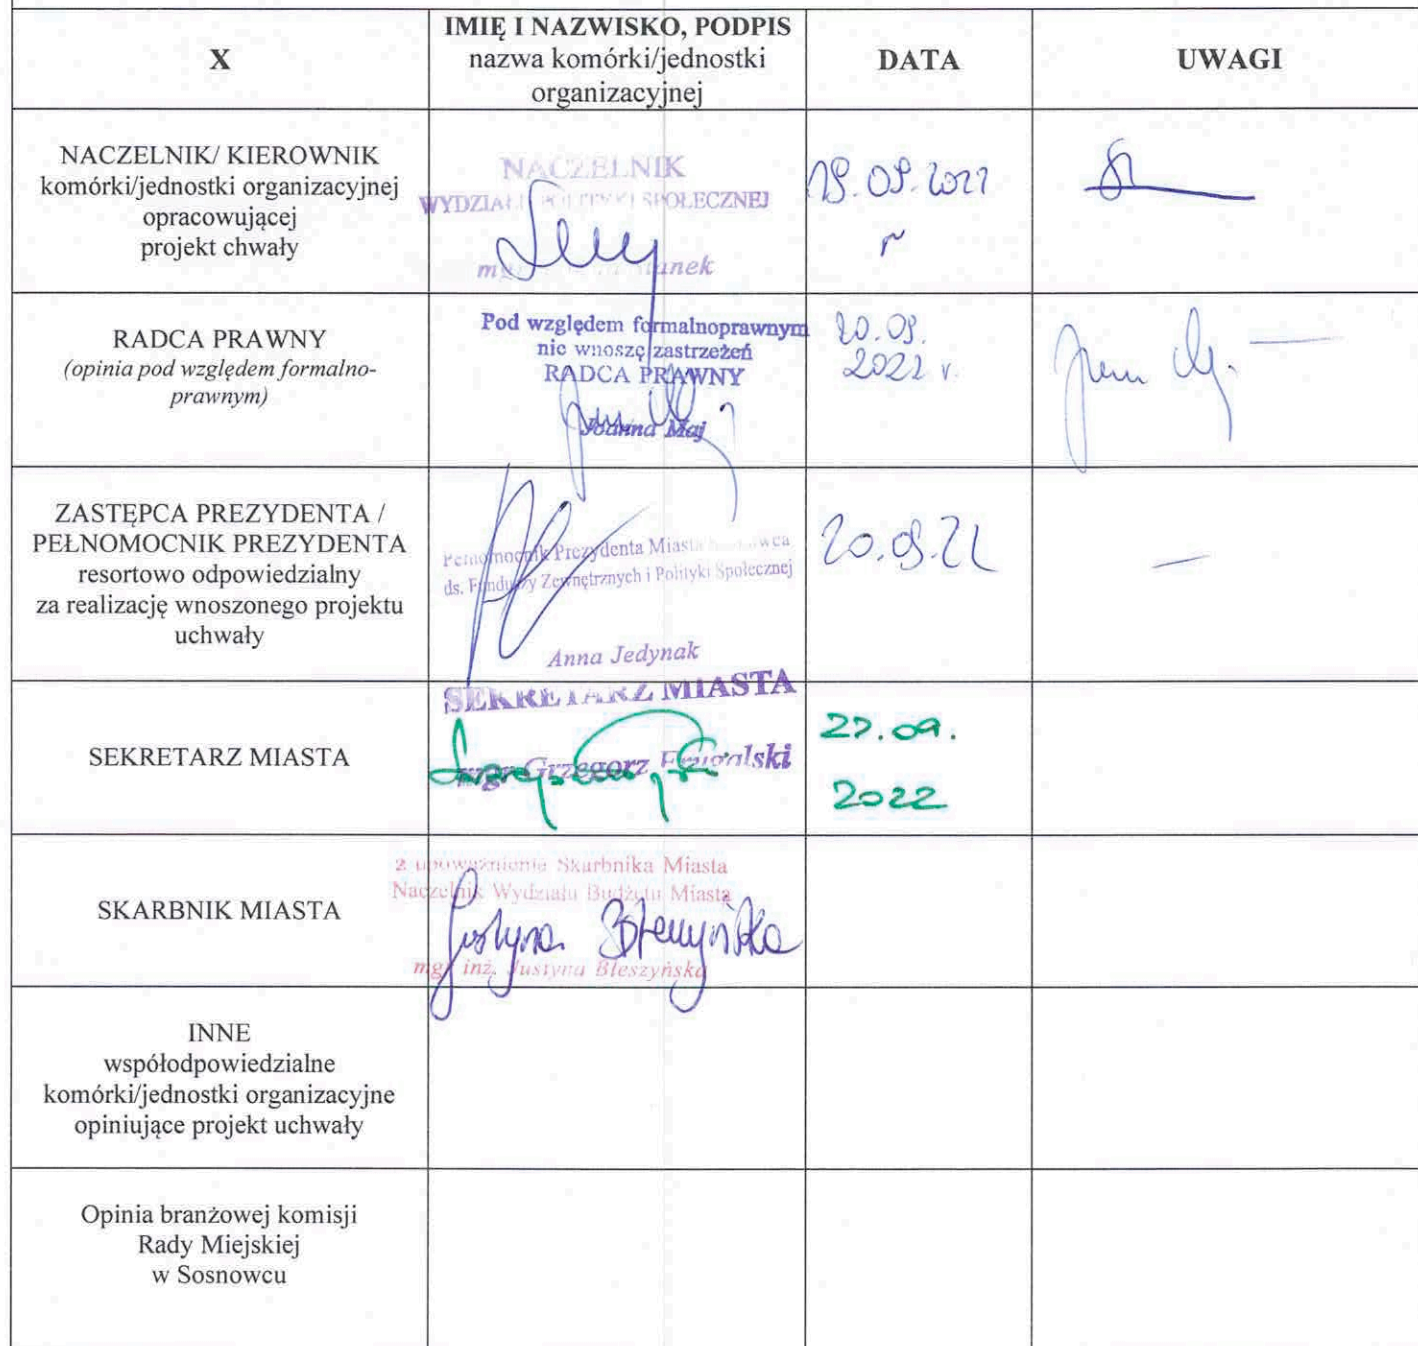 X
IMIĘ I NAZWISKO, PODPIS
nazwa komórki/jednostki
organizacyjnej
DATA
UWAGI
NACZELNIK/ KIEROWNIK
komórki/jednostki organizacyjnej
opracowującej
projekt chwały
NACZELNIK
WYDZIAŁU POLITYKI SPOŁECZNEJ
19.09.2022
r
RADCA PRAWNY
(opinia pod względem formalno-
prawnym)
Pod względem formalnoprawnym
nie wnoszę zastrzeżeń
RADCA PRAWNY
Joanna Maj
20.09.
2022 r.
ZASTĘPCA PREZYDENTA /
PEŁNOMOCNIK PREZYDENTA
resortowo odpowiedzialny
za realizację wnoszonego projektu
uchwały
Pełnomocnik Prezydenta Miasta Sosnowca
ds. Funduszy Zewnętrznych i Polityki Społecznej
Anna Jedynak
20.09.22
—
SEKRETARZ MIASTA
SEKRETARZ MIASTA
mgr Grzegorz
27.09.
2022
SKARBNIK MIASTA
z upoważnienia Skarbnika Miasta
Naczelnik Wydziału Budżetu Miasta
Justyna Błeszyńska
mgr inż. Justyna Błeszyńska
INNE
współodpowiedzialne
komórki/jednostki organizacyjne
opiniujące projekt uchwały
Opinia branżowej komisji
Rady Miejskiej
w Sosnowcu